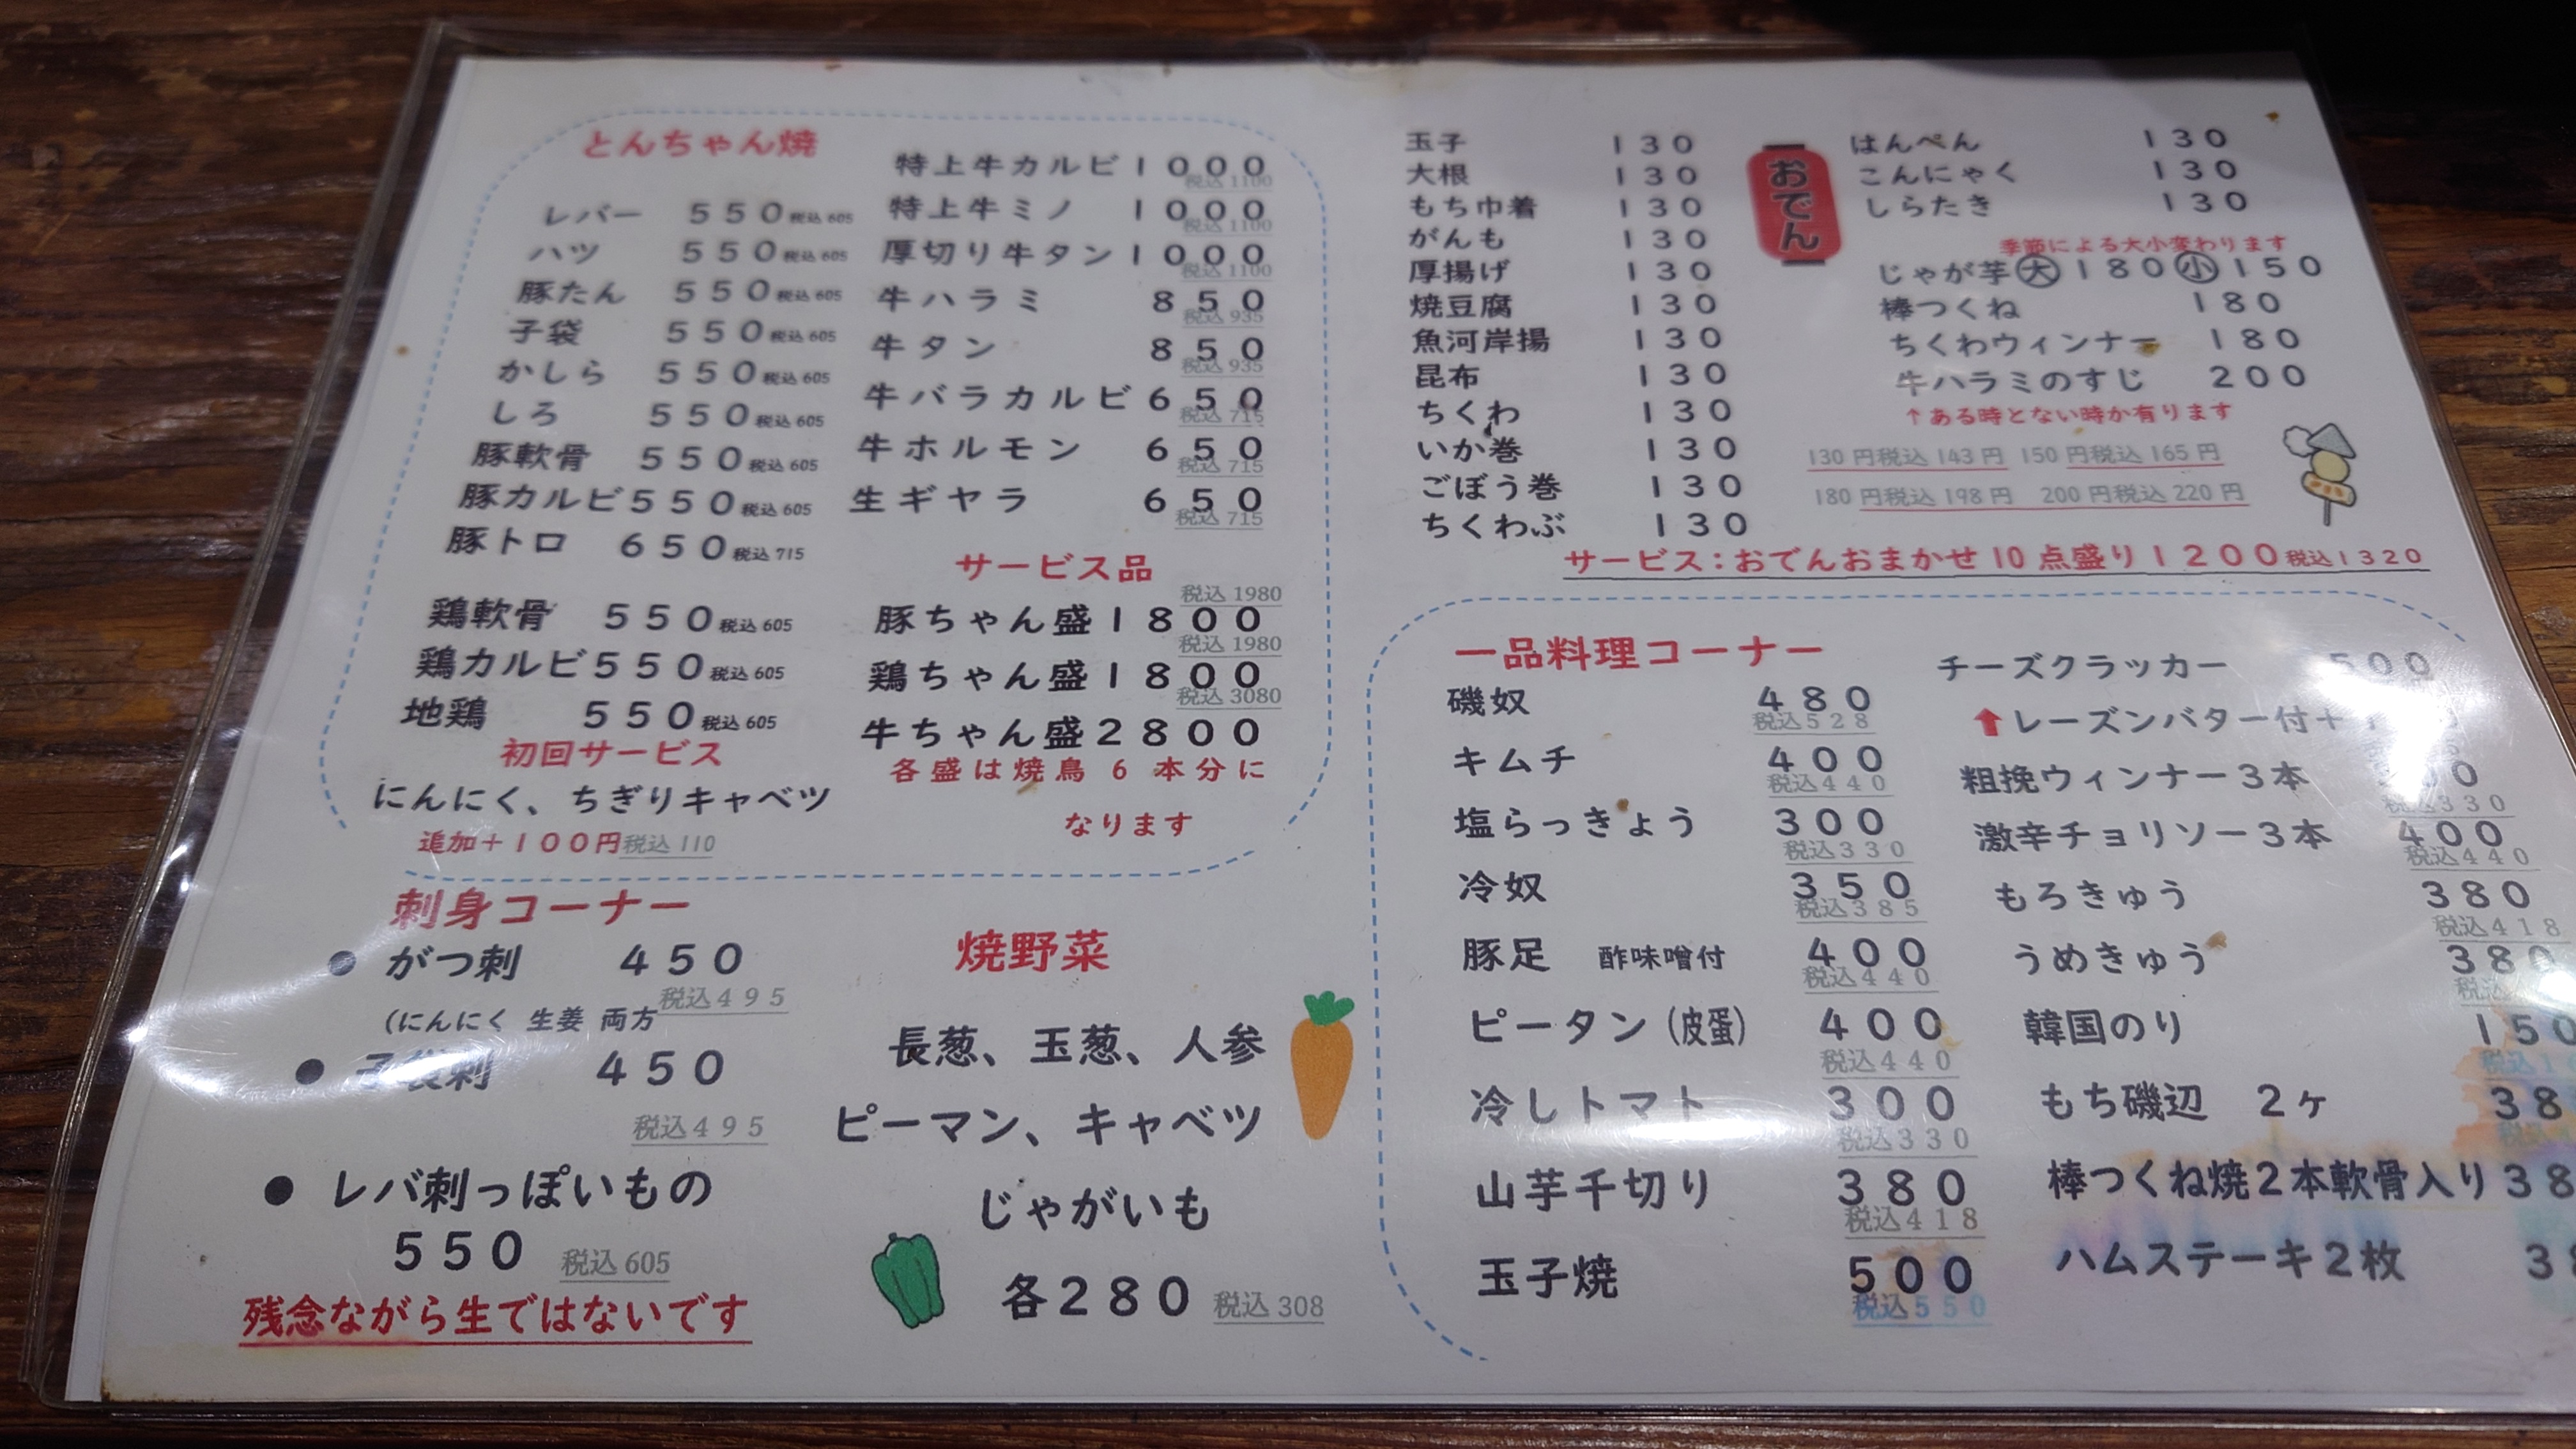 とんちゃん焼
レバー 550税込605
ハツ 550税込605
豚たん 550税込605
子袋 550税込605
かしら 550税込605
しろ 550税込605
豚軟骨 550税込605
豚カルビ550税込605
豚トロ 650税込715
鶏軟骨 550税込605
鶏カルビ550税込605
地鶏 550税込605
初回サービス
にんにく、ちぎりキャベツ
追加+100円税込110
特上牛カルビ1000
税込1100
特上牛ミノ 1000
税込1100
厚切り牛タン1000
税込1100
牛ハラミ 850
税込935
牛タン 850
税込935
牛バラカルビ650
税込715
牛ホルモン 650
税込715
生ギヤラ 650
税込715
サービス品
税込1980
豚ちゃん盛1800
税込1980
鶏ちゃん盛1800
税込3080
牛ちゃん盛2800
各盛は焼鳥6本分に
なります
刺身コーナー
● がつ刺 450
税込495
(にんにく 生姜 両方
● 子袋刺 450
税込495
● レバ刺っぽいもの
550 税込605
残念ながら生ではないです
焼野菜
長葱、玉葱、人参
ピーマン、キャベツ
じゃがいも
各280 税込308
おでん
玉子 130
大根 130
もち巾着 130
がんも 130
厚揚げ 130
焼豆腐 130
魚河岸揚 130
昆布 130
ちくわ 130
いか巻 130
ごぼう巻 130
ちくわぶ 130
はんぺん 130
こんにゃく 130
しらたき 130
季節による大小変わります
じゃが芋大180小150
棒つくね 180
ちくわウィンナー 180
牛ハラミのすじ 200
↑ある時とない時か有ります
130円税込143円 150円税込165円
180円税込198円 200円税込220円
サービス:おでんおまかせ10点盛り1200税込1320
一品料理コーナー
磯奴 480
税込528
キムチ 400
税込440
塩らっきょう 300
税込330
冷奴 350
税込385
豚足 酢味噌付 400
税込440
ピータン(皮蛋) 400
税込440
冷しトマト 300
税込330
山芋千切り 380
税込418
玉子焼 500
税込550
チーズクラッカー 500
↑レーズンバター付+
粗挽ウィンナー3本
税込330
激辛チョリソー3本 400
税込440
もろきゅう 380
税込418
うめきゅう 380
税込
韓国のり 150
税込
もち磯辺 2ヶ 38
棒つくね焼2本軟骨入り38
ハムステーキ2枚 38